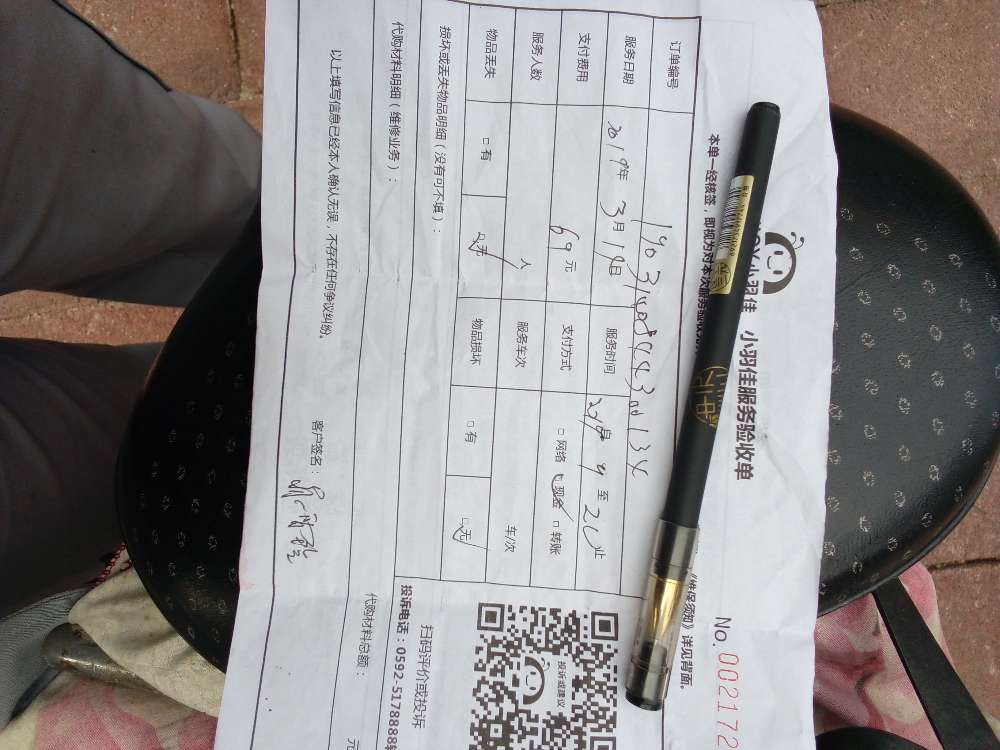 小羽佳 小羽佳服务验收单
No.002172
本单一经核签，即视为对本次服务验
《维保须知》详见背面。
订单编号
服务日期 2019年3月19日 服务时间 至
支付费用 69元 支付方式 □网络 □现金 □转账
服务人数 人 服务车次 车/次
物品丢失 □有 □无 物品损坏 □有 □无
损坏或丢失物品明细（没有可不填）：
代购材料明细（维修业务）：
代购材料总额： 元
以上填写信息已经本人确认无误，不存在任何争议纠纷。
客户签名：
投诉或建议
扫码评价或投诉
投诉电话：0592-5178888转